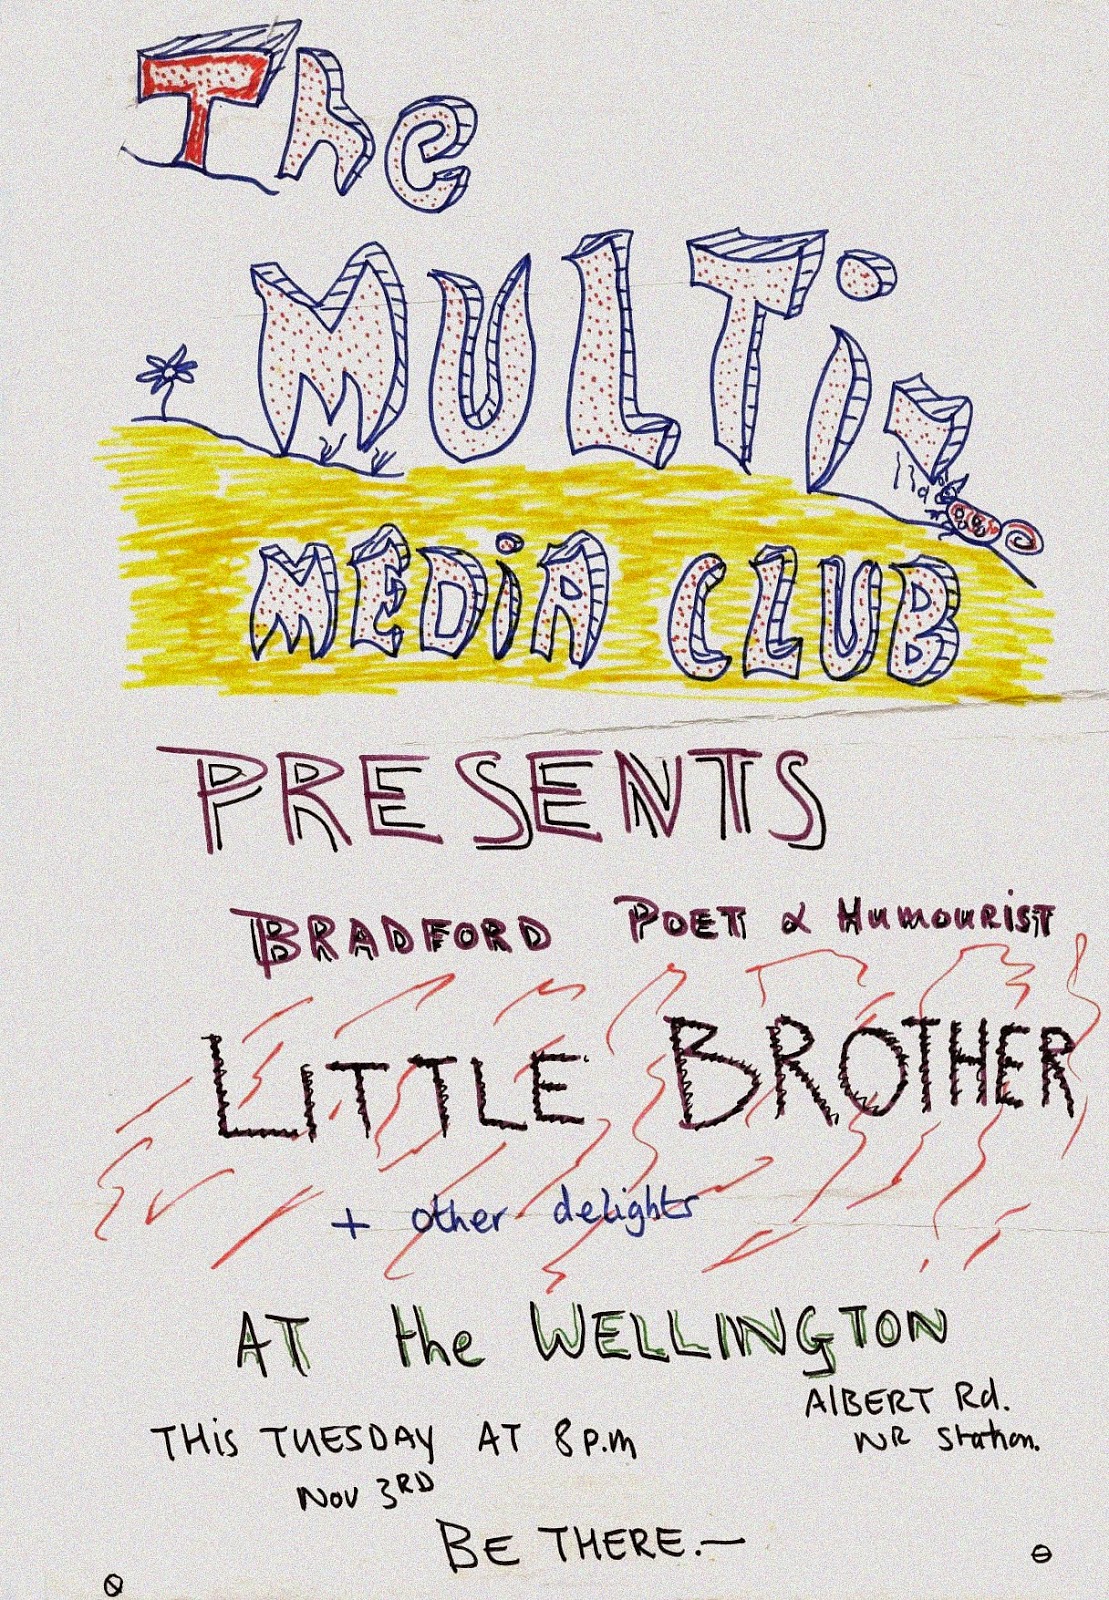 The
MULTi-
MEDiA CLUB
PRESENTS
BRADFORD POET & HUMOURiST
LITTLE BROTHER
+ other delights
AT the WELLINGTON
AlBERT Rd.
NR Station.
THiS TUESDAY AT 8 p.m
Nov 3RD
BE THERE.—